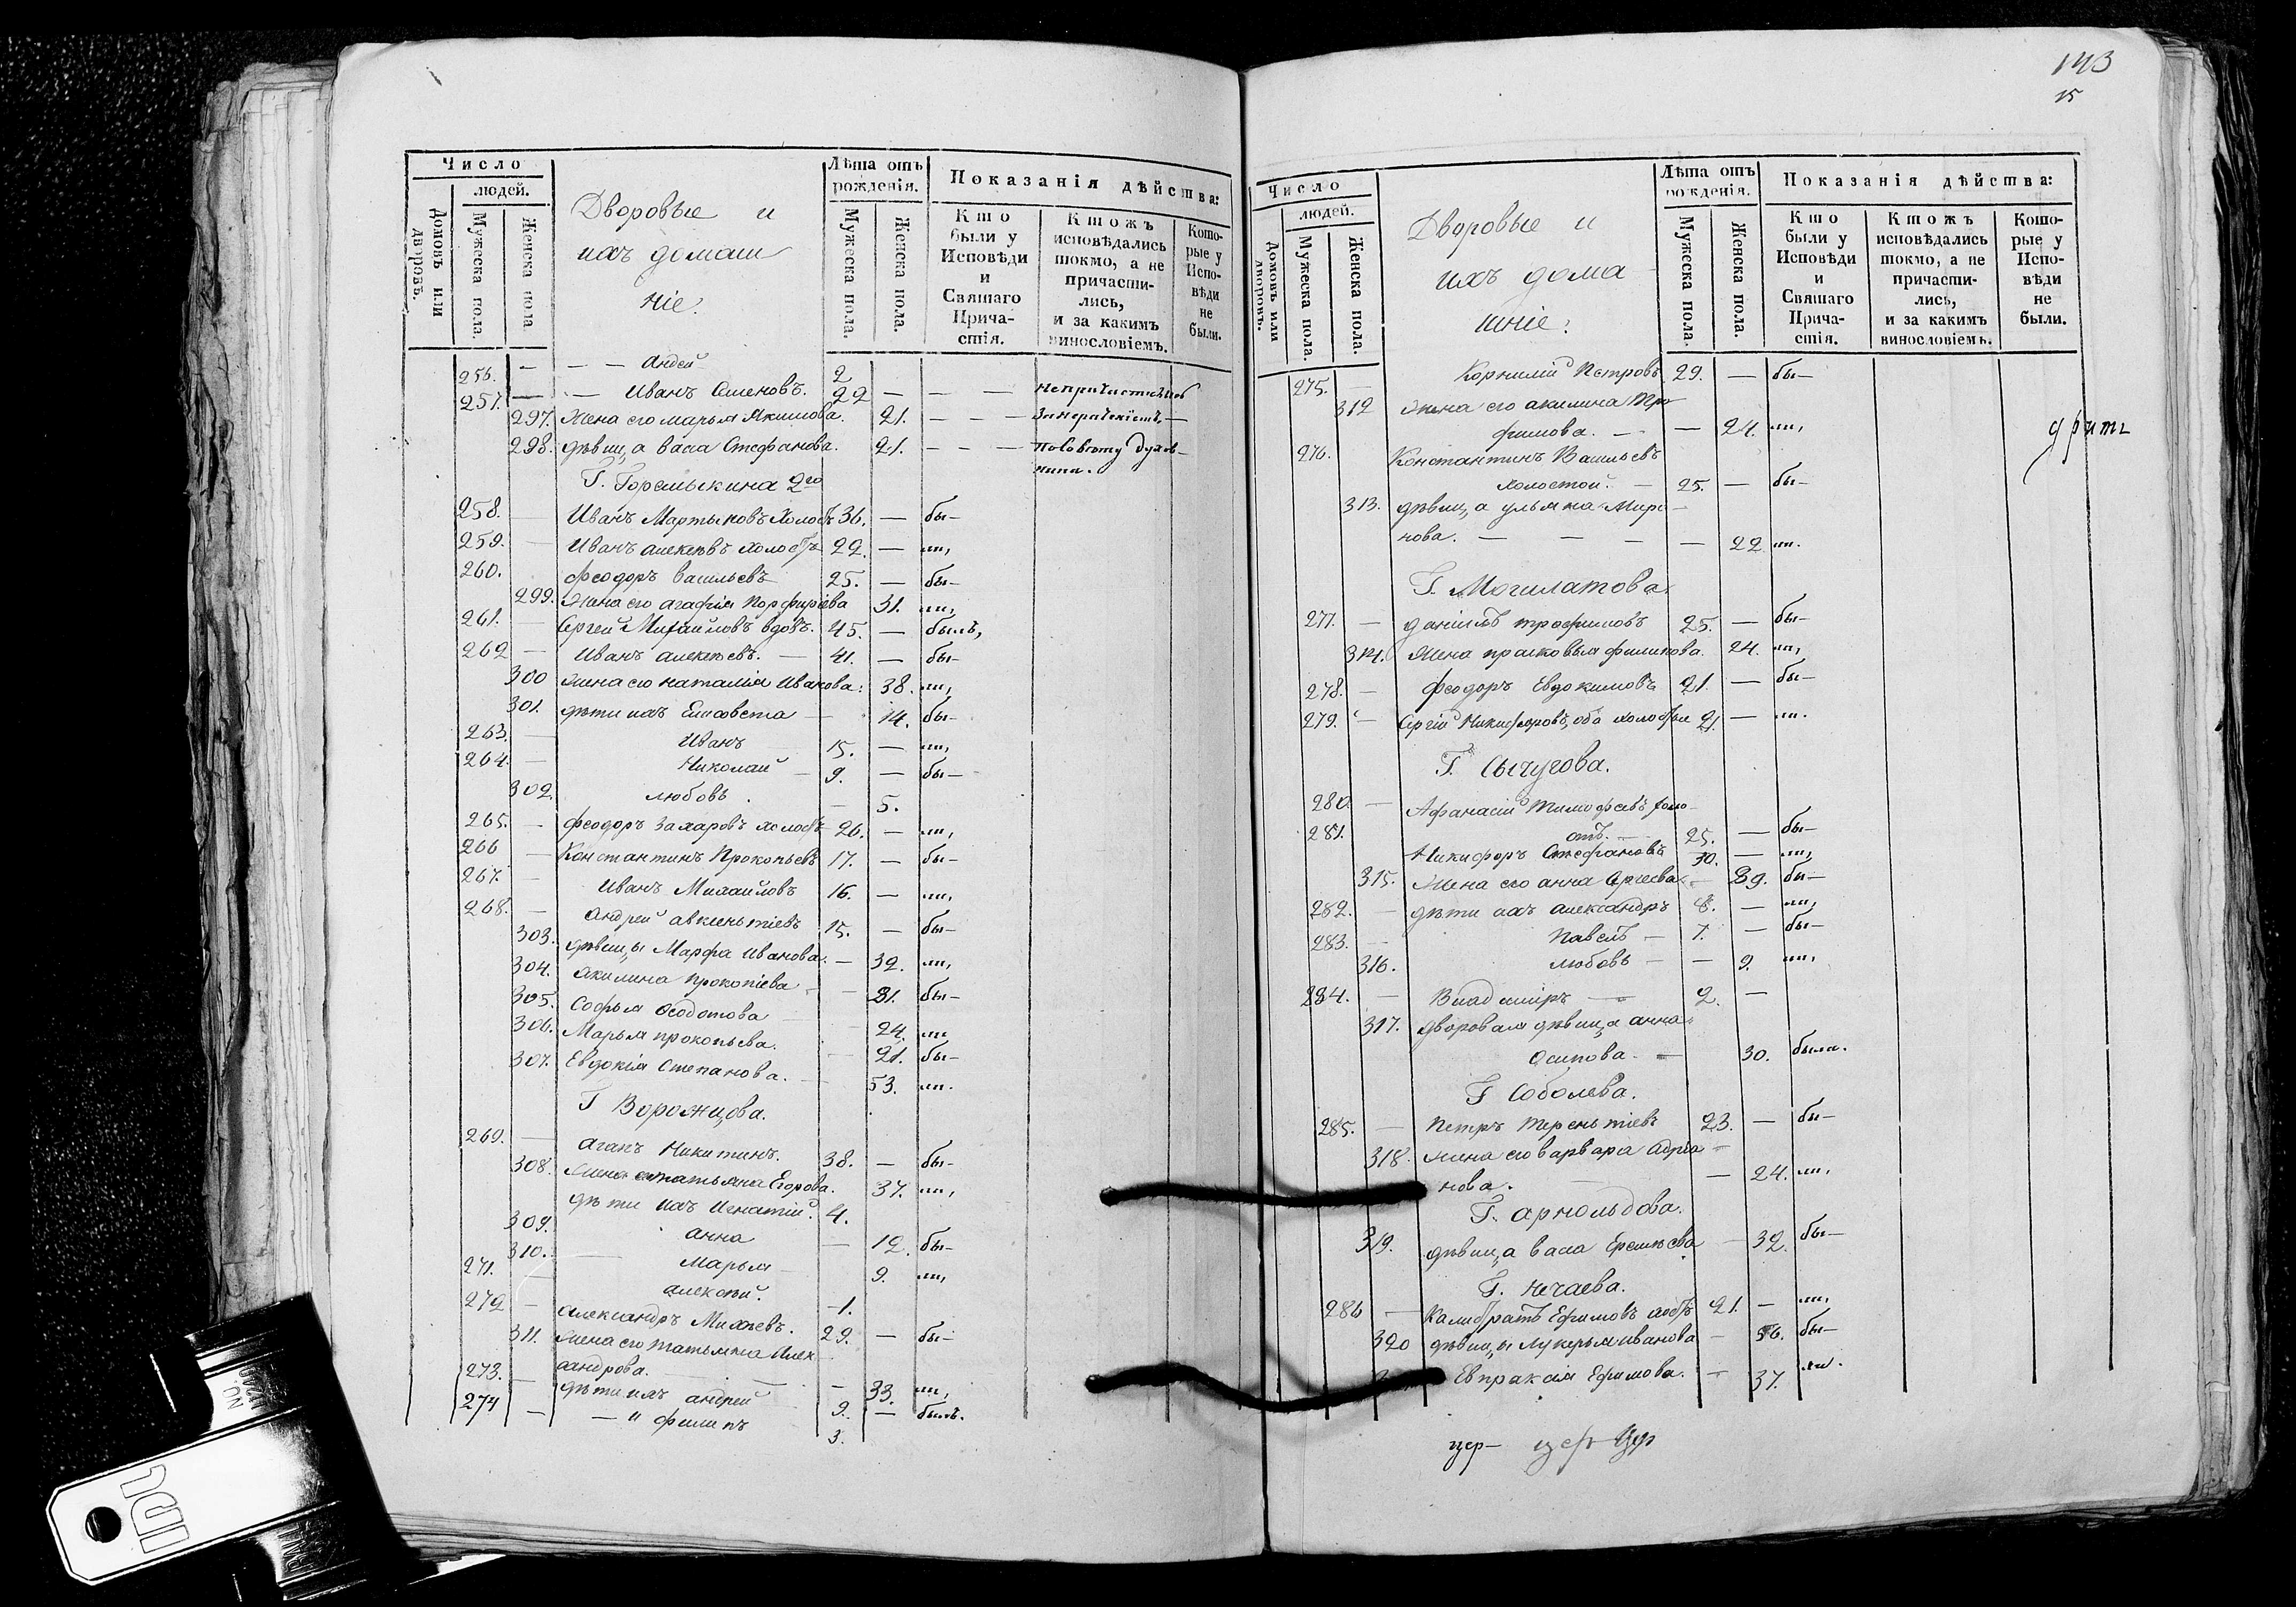 Число
людей.
Домовъ или дворовъ.
Мужеска пола.
Женска пола.
Дворовые и
ихъ домаш
ніе.
Лѣта отъ
рожденія.
Мужеска пола.
Женска пола.
Показанія дѣйства:
Кто были у Исповѣди и Святаго Прича-стія.
Ктожъ исповѣдались токмо, а не причасти-лись, и за какимъ винословіемъ.
Кото-рые у Испо-вѣди не были.
256. — — — Андей 2
257. — — Иванъ Семеновъ. 22 — — —
297. Жена его марья Якимова. 21. — — —
298. дѣвица васа Стефанова. 21. — — — По Совѣту духов-
ника.
Г. Горемыкина 2го
258. — Иванъ Мартыновъ Холостъ 36. — бы—
259. — Иванъ алексѣевъ холостъ 22. — ли,
260. феодоръ васильевъ 25. — бы—
299. Жена его агафія Порфиріева 31. ли,
261. — Сергей Михайловъ вдовъ. 45. — былъ,
262 — Иванъ алексѣевъ. — 41. — бы—
300 жена его наталія Иванова: 38. ли,
301. дѣти ихъ Елисавета — 14. бы—
263. — Иванъ 15. — ли,
264. — Николай — 9. — бы—
302. любовь. — 5.
265. — феодоръ Захаровъ холостъ 26. — ли,
266 — Константинъ Прокопьевъ 17. — бы—
267. — Иванъ Михайловъ 16. — ли,
268. — Андрей авксентіевъ 15. — бы—
303. дѣвицы Марфа Иванова. — 32. ли,
304. Акилина Прокопіева — 31. бы—
305. Софья Ѳеодотова — 24. ли
306. Марья прокопьева. — 21. бы—
307. Евдокія Степанова. — 53. ли.
Г Ворожцова.
269. — Агапъ Никитинъ. 38. — бы—
308. Жена его татьяна Егорова. 37. ли,
дѣти ихъ Игнатій. 4.
309. анна — 12. бы—
310. — Марья — 9. ли,
271. — алексѣй. —1.
272 — Александръ Михѣевъ. 29. — бы—
311. Жена его Татьяна Алек
сандрова. — — 33. ли,
273. — дѣти ихъ андрей 9. — былъ.
274 — — " филипъ 3.
143
15
Число
людей.
Домовъ или дворовъ.
Мужеска пола.
Женска пола.
Дворовые и
ихъ дома
шніе.
Лѣта отъ
рожденія.
Мужеска пола.
Женска пола.
Показанія дѣйства:
Кто были у Исповѣди и Святаго Прича-стія.
Ктожъ исповѣдались токмо, а не причасти-лись, и за какимъ винословіемъ.
Кото-рые у Испо-вѣди не были.
275. — Корнилій Петровъ 29. — бы—
312 Жена его акилина Тро
фимова. — — 24. ли,
276. Константинъ Васильевъ
холостой. — 25. — бы—
313. дѣвица ульяна Миро —
нова. — — — — 22 ли.
Г. Могилатова.
277. — даніилъ трофимовъ 25. — бы—
314. Жена прасковья филипова. 24. ли,
278. — феодоръ Евдокимовъ 21. — бы—
279. — Сергій Никифоровъ, оба холостые 21. — ли.
Г. Сычугова.
280. — Афанасій Тимофеевъ холо
стъ. — 25. — бы—
281. Никифоръ Стефановъ 30. — ли,
315. Жена его анна Сергеева. — 29. бы—
282. — дѣти ихъ александръ 8. — ли,
283. — Павелъ — 7. — бы—
316. любовь — — 9. ли,
284. — Владиміръ — 2. —
317. дворовая дѣвица анна
Осипова. — 30. была.
Г Соболева.
285. — Петръ терентіевъ 23. — бы—
318. жена его варвара адріа —
нова. — 24. ли.
Г. арнольдова.
319. дѣвица васа Еремѣева — 32. бы—
Г. Нечаева.
286 — Калистратъ Ефимовъ холстъ 21. — ли,
320 дѣвицы Лукерья иванова — 56. бы—
Евпраксія Ефимова. — 37. ли.
цер—